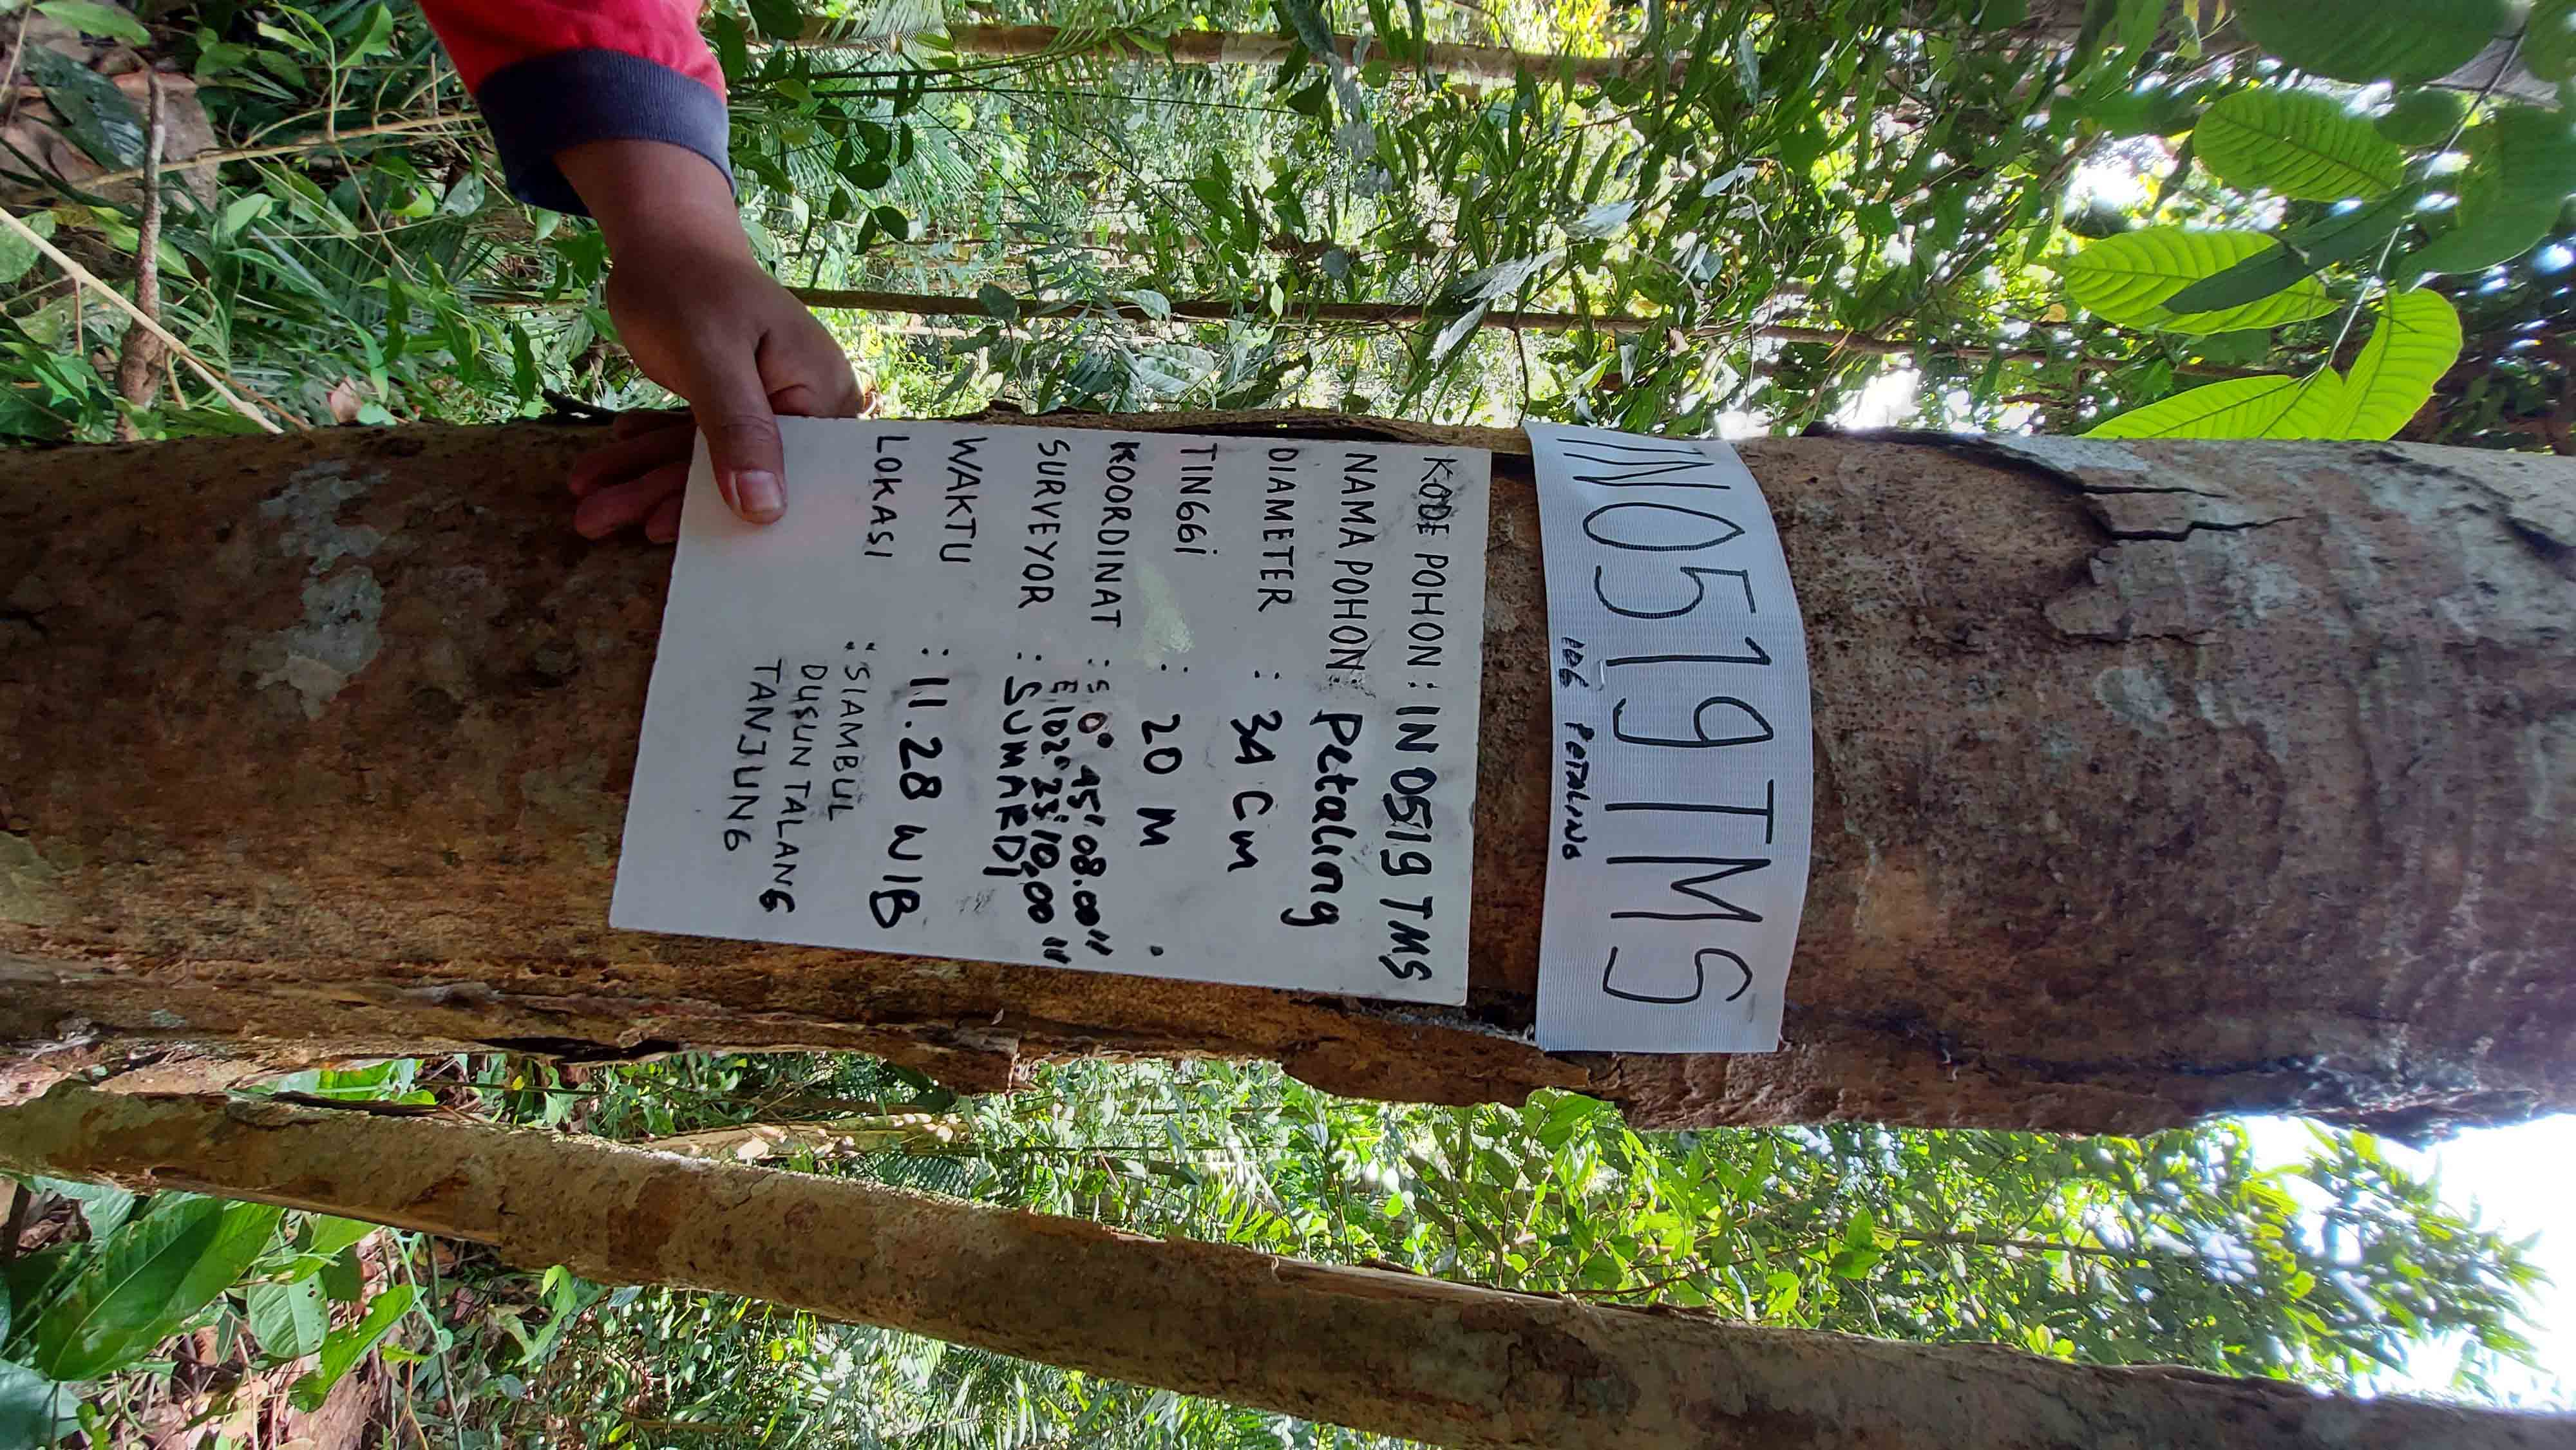 IN0519TMS
106 PETALING
KODE POHON : IN 0519 TMS
NAMA POHON : Petaling
DIAMETER : 34 Cm
TINGGI : 20 M
KOORDINAT : S 0° 45' 08.00"
E 102° 23' 10,00"
SURVEYOR : SUMARDI
WAKTU : 11.28 WIB
LOKASI : SIAMBUL
DUSUN TALANG
TANJUNG